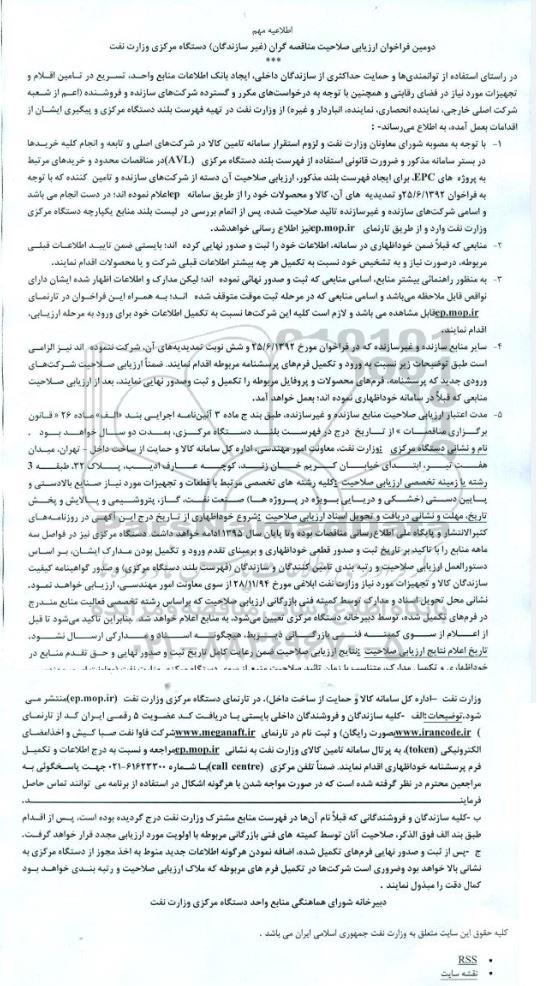 اطلاعیه مهم
دومین فراخوان ارزیابی صلاحیت مناقصه گران (غیر سازندگان) دستگاه مرکزی وزارت نفت
***
در راستای استفاده از توانمندی‌ها و حمایت حداکثری از سازندگان داخلی، ایجاد بانک اطلاعات منابع واحد، تسریع در تامین اقلام و
تجهیزات مورد نیاز در فضای رقابتی و همچنین با توجه به درخواست‌های مکرر و گسترده شرکت‌های سازنده و فروشنده (اعم از شعبه
شرکت اصلی خارجی، نماینده انحصاری، نماینده، انباردار و غیره) از وزارت نفت در تهیه فهرست بلند دستگاه مرکزی و پیگیری ایشان از
اقدامات بعمل آمده، به اطلاع می‌رساند- :
۱- با توجه به مصوبه شورای معاونان وزارت نفت و لزوم استقرار سامانه تامین کالا در شرکت‌های اصلی و تابعه و انجام کلیه خریدها
در بستر سامانه مذکور و ضرورت قانونی استفاده از فهرست بلند دستگاه مرکزی (AVL)در مناقصات محدود و خریدهای مرتبط
به پروژه های EPC، برای ایجاد فهرست بلند مذکور، ارزیابی صلاحیت آن دسته از شرکت‌های سازنده و تامین کننده که با توجه
به فراخوان ۲۵/۶/۱۳۹۲و تمدیدیه های آن، کالا و محصولات خود را از طریق سامانه epاعلام نموده اند؛ در دست انجام می باشد
و اسامی شرکت‌های سازنده و غیرسازنده تائید صلاحیت شده، پس از اتمام بررسی در لیست بلند منابع یکپارچه دستگاه مرکزی
وزارت نفت وارد و از طریق تارنمای ep.mop.irنیز اطلاع رسانی خواهدشد.
۲- منابعی که قبلاً ضمن خوداظهاری در سامانه، اطلاعات خود را ثبت و صدور نهایی کرده اند؛ بایستی ضمن تایید اطلاعات قبلی
مربوطه، درصورت نیاز و به تشخیص خود نسبت به تکمیل هر چه بیشتر اطلاعات قبلی شرکت و یا محصولات اقدام نمایند.
۳- به منظور راهنمائی بیشتر منابع، اسامی منابعی که ثبت و صدور نهائی نموده اند؛ لیکن مدارک و اطلاعات اظهار شده ایشان دارای
نواقص قابل ملاحظه می‌باشد و اسامی منابعی که در مرحله ثبت موقت متوقف شده اند؛ به همراه این فراخوان در تارنمای
ep.mop.irقابل مشاهده می باشد و لازم است کلیه این شرکت‌ها نسبت به تکمیل اطلاعات خود برای ورود به مرحله ارزیابی،
اقدام نمایند.
۴- سایر منابع سازنده و غیرسازنده که در فراخوان مورخ ۲۵/۶/۱۳۹۲ و شش نوبت تمدیدیه‌های آن، شرکت ننموده اند نیز الزامی
است طبق توضیحات زیر نسبت به ورود و تکمیل فرم‌های پرسشنامه مربوطه اقدام نمایند. ضمناً ارزیابی صلاحیت شرکت‌های
ورودی جدید که پرسشنامه، فرم‌های محصولات و پروفایل مربوطه را تکمیل و ثبت وصدور نهایی نمایند، بعد از ارزیابی صلاحیت
منابعی که قبلاً در سامانه خوداظهاری نموده اند؛ بعمل خواهد آمد.
۵- مدت اعتبار ارزیابی صلاحیت منابع سازنده و غیرسازنده، طبق بند ج ماده ۳ آئین‌نامه اجرایی بند «الف» ماده ۲۶ « قانون
برگزاری مناقصات » از تاریخ درج در فهرست بلند دستگاه مرکزی، بمدت دو سال خواهد بود .
نام و نشانی دستگاه مرکزی :وزارت نفت، معاونت امور مهندسی، اداره کل سامانه کالا و حمایت از ساخت داخل – تهران، میدان
هفت تیر، ابتدای خیابان کریم خان زند، کوچه عارف ادیب، پلاک ۲۲، طبقه 3
رشته یا زمینه تخصصی ارزیابی صلاحیت :کلیه رشته های تخصصی مرتبط با قطعات و تجهیزات مورد نیاز صنایع بالادستی و
پایین دستی (خشکی و دریایی بویژه در پروژه ها) صنعت نفت، گاز، پتروشیمی و پالایش و پخش
تاریخ، مهلت و نشانی دریافت و تحویل اسناد ارزیابی صلاحیت :شروع خوداظهاری از تاریخ درج این آگهی در روزنامه‌های
کثیرالانتشار و پایگاه ملی اطلاع رسانی مناقصات بوده وتا پایان سال ۱۳۹۵ ادامه خواهد داشت. دستگاه مرکزی نیز در فواصل سه
ماهه منابع را با تاکید بر تاریخ ثبت و صدور قطعی خوداظهاری و برمبنای تقدم ورود و تکمیل بودن مدارک ایشان، بر اساس
دستورالعمل ارزیابی صلاحیت و رتبه بندی تامین کنندگان و سازندگان (فهرست بلند دستگاه مرکزی) و صدور گواهینامه کیفیت
سازندگان کالا و تجهیزات مورد نیاز وزارت نفت ابلاغی مورخ ۲۸/۱۱/۹۴از سوی معاونت امور مهندسی، ارزیابی خواهد نمود.
نشانی محل تحویل اسناد و مدارک توسط کمیته فنی بازرگانی ارزیابی صلاحیت که براساس رشته تخصصی فعالیت منابع مندرج
در فرم‌های تکمیل شده، توسط دبیرخانه دستگاه مرکزی تعیین می‌شود، به منابع اعلام خواهد شد. بنابراین تاکید می‌شود تا قبل
از اعلام از سوی کمیته فنی بازرگانی ذیربط، هیچگونه اسناد و مدارکی ارسال نشود.
تاریخ اعلام نتایج ارزیابی صلاحیت :نتایج ارزیابی صلاحیت ضمن رعایت کامل تاریخ ثبت و صدور نهایی و حق تقدم منابع در
خوداظهاری و تکمیل مدارک، متناسب با زمان تائید صلاحیت منبع از سوی دستگاه مرکزی وزارت نفت
وزارت نفت –اداره کل سامانه کالا و حمایت از ساخت داخل)، در تارنمای دستگاه مرکزی وزارت نفت (ep.mop.ir)منتشر می
شود.توضیحات:الف -کلیه سازندگان و فروشندگان داخلی بایستی با دریافت کد عضویت ۵ رقمی ایران کد از تارنمای
( www.irancode.irبصورت رایگان) و ثبت نام در تارنمای www.meganaft.irشرکت فاوا نفت صبا کیش و اخذامضای
الکترونیکی (token)، به پرتال سامانه تامین کالای وزارت نفت به نشانی ep.mop.irمراجعه و نسبت به درج اطلاعات و تکمیل
فرم پرسشنامه خوداظهاری اقدام نمایند. ضمناً تلفن مرکزی (call centre)با شماره ۶۱۶۲۳۳۰۰-۰۲۱ جهت پاسخگوئی به
مراجعین محترم در نظر گرفته شده است که در صورت مواجه شدن با هرگونه اشکال در استفاده از برنامه می توانند تماس حاصل
فرمایند.
ب -کلیه سازندگان و فروشندگانی که قبلاً نام آن‌ها در فهرست منابع مشترک وزارت نفت درج گردیده بوده است، پس از اقدام
طبق بند الف فوق الذکر، صلاحیت آنان توسط کمیته های فنی بازرگانی مربوطه با اولویت مورد ارزیابی مجدد قرار خواهد گرفت.
ج -پس از ثبت و صدور نهایی فرم‌های تکمیل شده، اضافه نمودن هرگونه اطلاعات جدید منوط به اخذ مجوز از دستگاه مرکزی به
نشانی بالا خواهد بود وضروری است شرکت‌ها در تکمیل فرم های مربوطه که ملاک ارزیابی صلاحیت و رتبه بندی خواهد بود
کمال دقت را مبذول نمایند .
دبیرخانه شورای هماهنگی منابع واحد دستگاه مرکزی وزارت نفت
کلیه حقوق این سایت متعلق به وزارت نفت جمهوری اسلامی ایران می باشد .
RSS
نقشه سایت